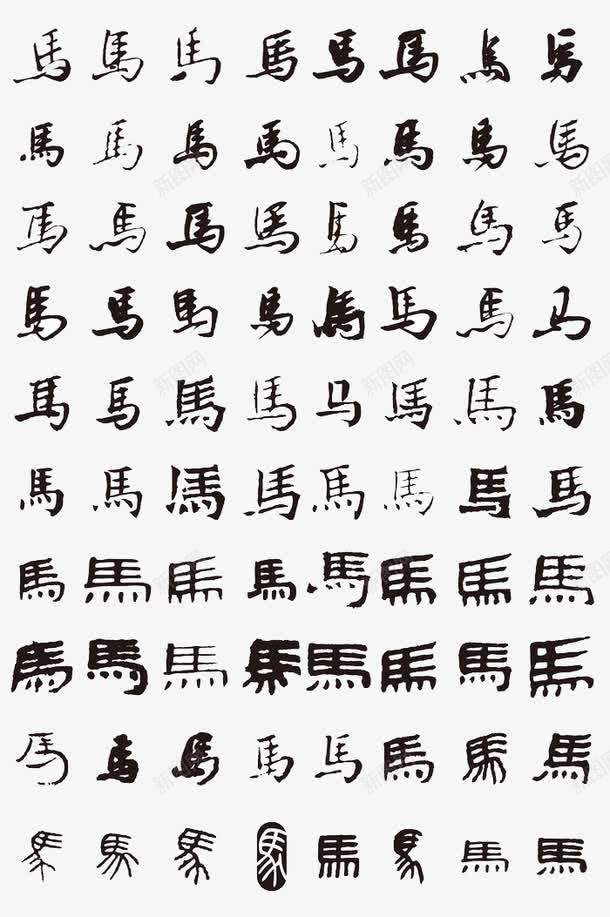 馬馬馬馬馬馬馬馬
馬馬馬馬馬馬馬馬
馬馬馬馬馬馬馬馬
馬馬馬馬馬馬馬马
馬馬馬馬马馬馬馬
馬馬馬馬馬馬馬馬
馬馬馬馬馬馬馬馬
馬馬馬馬馬馬馬馬
馬馬馬馬馬馬馬馬
馬馬馬馬馬馬馬馬